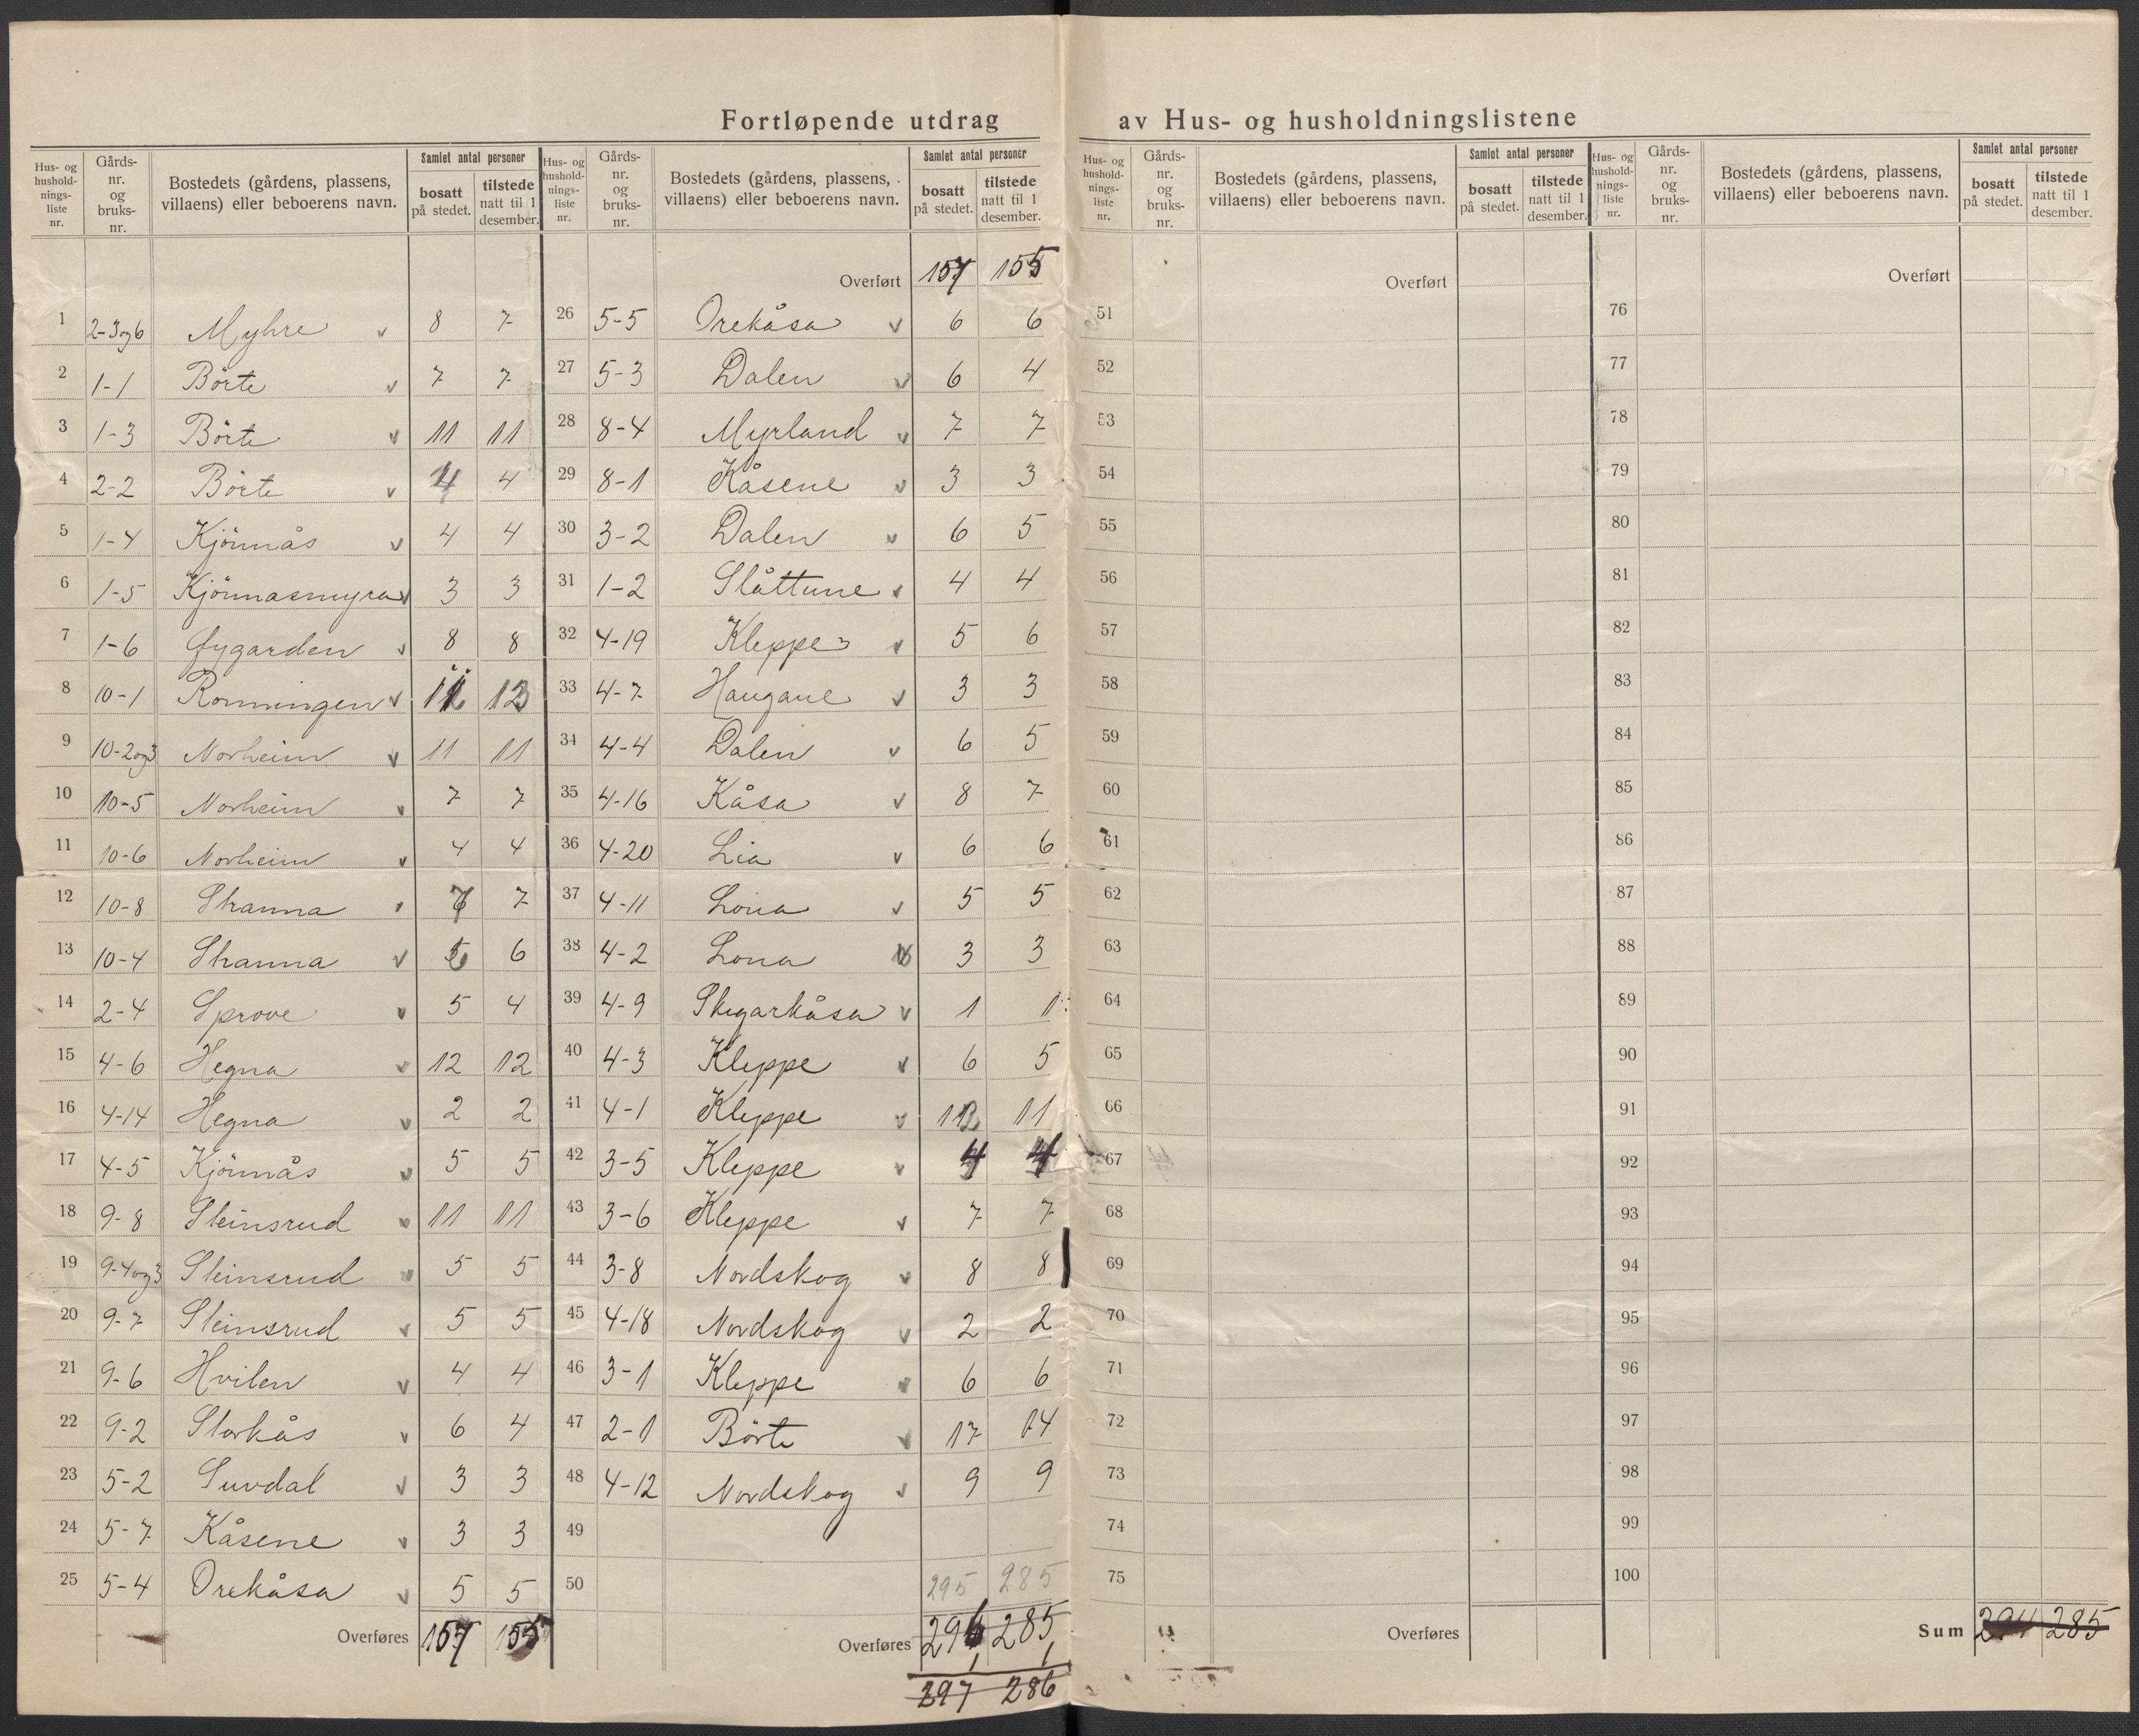 Fortløpende utdrag av Hus- og husholdningslistene
Hus- og husholdnings-liste nr. | Gårds-nr. og bruks-nr. | Bostedets (gårdens, plassens, villaens) eller beboerens navn. | Samlet antal personer | bosatt på stedet. | tilstede natt til 1 desember.
1 2-3og6 Myhre v 8 7
2 1-1 Börte v 7 7
3 1-3 Börte v 11 11
4 2-2 Börte v 4 4
5 1-4 Kjönnås v 4 4
6 1-5 Kjönnasmyra v 3 3
7 1-6 Øygarden v 8 8
8 10-1 Rönningen v
9 10-2og3 Norheim v 11 11
10 10-5 Norheim v 7 7
11 10-6 Norheim v 4 4
12 10-8 Skanna 7 7
13 10-4 Skanna v 6 6
14 2-4 Sprove v 5 4
15 4-6 Hegna v 12 12
16 4-14 Hegna v 2 2
17 4-5 Kjönnås v 5 5
18 9-8 Steinsrud v 11 11
19 9-4og3 Steinsrud v 5 5
20 9-7 Steinsrud v 5 5
21 9-6 Hvilen v 4 4
22 9-2 Storkås v 6 4
23 5-2 Suvdal v 3 3
24 5-7 Kåsene v 3 3
25 5-4 Orekåsa v 5 5
Overføres 157 155
Hus- og husholdnings-liste nr. | Gårds-nr. og bruks-nr. | Bostedets (gårdens, plassens, villaens) eller beboerens navn. | Samlet antal personer | bosatt på stedet. | tilstede natt til 1 desember.
Overført 157 155
26 5-5 Orekåsa v 6 6
27 5-3 Dalen v 6 4
28 8-4 Myrland v 7 7
29 8-1 Kåsene v 3 3
30 3-2 Dalen v 6 5
31 1-2 Slåttune v 4 4
32 4-19 Kleppe v 5 6
33 4-7 Haugane v 3 3
34 4-4 Dalen v 6 5
35 4-16 Kåsa v 8 7
36 4-20 Lia v 6 6
37 4-11 Lona v 5 5
38 4-2 Lona v 3 3
39 4-9 Skegarkåsa v 1 1
40 4-3 Kleppe v 6 5
41 4-1 Kleppe v 12 11
42 3-5 Kleppe v 4 4
43 3-6 Kleppe v 7 7
44 3-8 Nordskog v 8 8
45 4-18 Nordskog v 2 2
46 3-1 Kleppe v 6 6
47 2-1 Börte v 17 14
48 4-12 Nordskog v 9 9
49
50 295 285
Overføres 296 285
1 1
297 286
Hus- og husholdnings-liste nr. | Gårds-nr. og bruks-nr. | Bostedets (gårdens, plassens, villaens) eller beboerens navn. | Samlet antal personer | bosatt på stedet. | tilstede natt til 1 desember.
Overført
51
52
53
54
55
56
57
58
59
60
61
62
63
64
65
66
67
68
69
70
71
72
73
74
75
Overføres
Hus- og husholdnings-liste nr. | Gårds-nr. og bruks-nr. | Bostedets (gårdens, plassens, villaens) eller beboerens navn. | Samlet antal personer | bosatt på stedet. | tilstede natt til 1 desember.
Overført
76
77
78
79
80
81
82
83
84
85
86
87
88
89
90
91
92
93
94
95
96
97
98
99
100
Sum 294 285